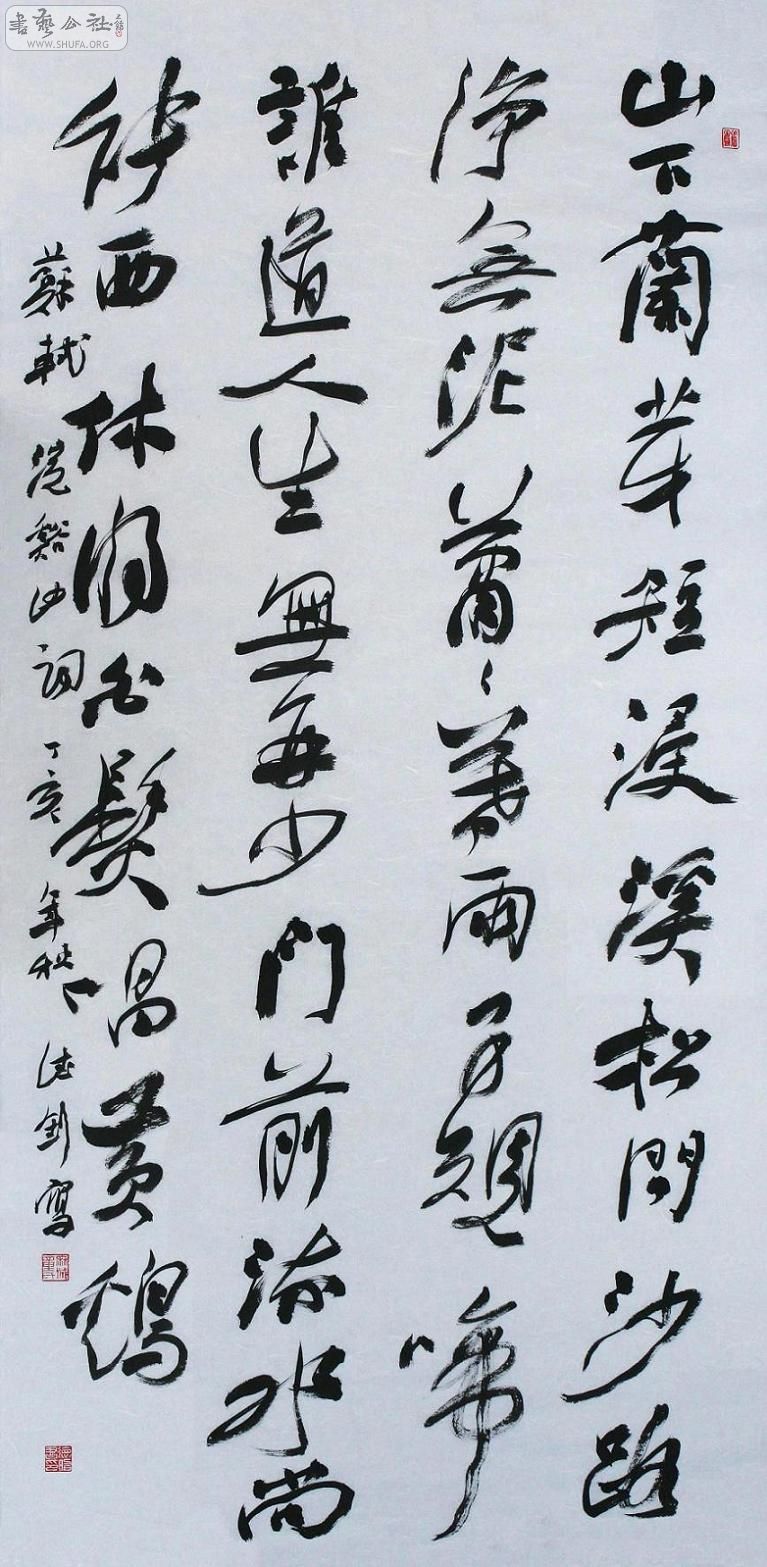 書藝公社
WWW.SHUFA.ORG
山下蘭芽短浸溪松間沙路
淨無泥蕭〻暮雨子規啼
誰道人生無再少門前流水尚
能西休將白髮唱黃鷄
蘇軾浣谿沙詞丁亥年秋寫